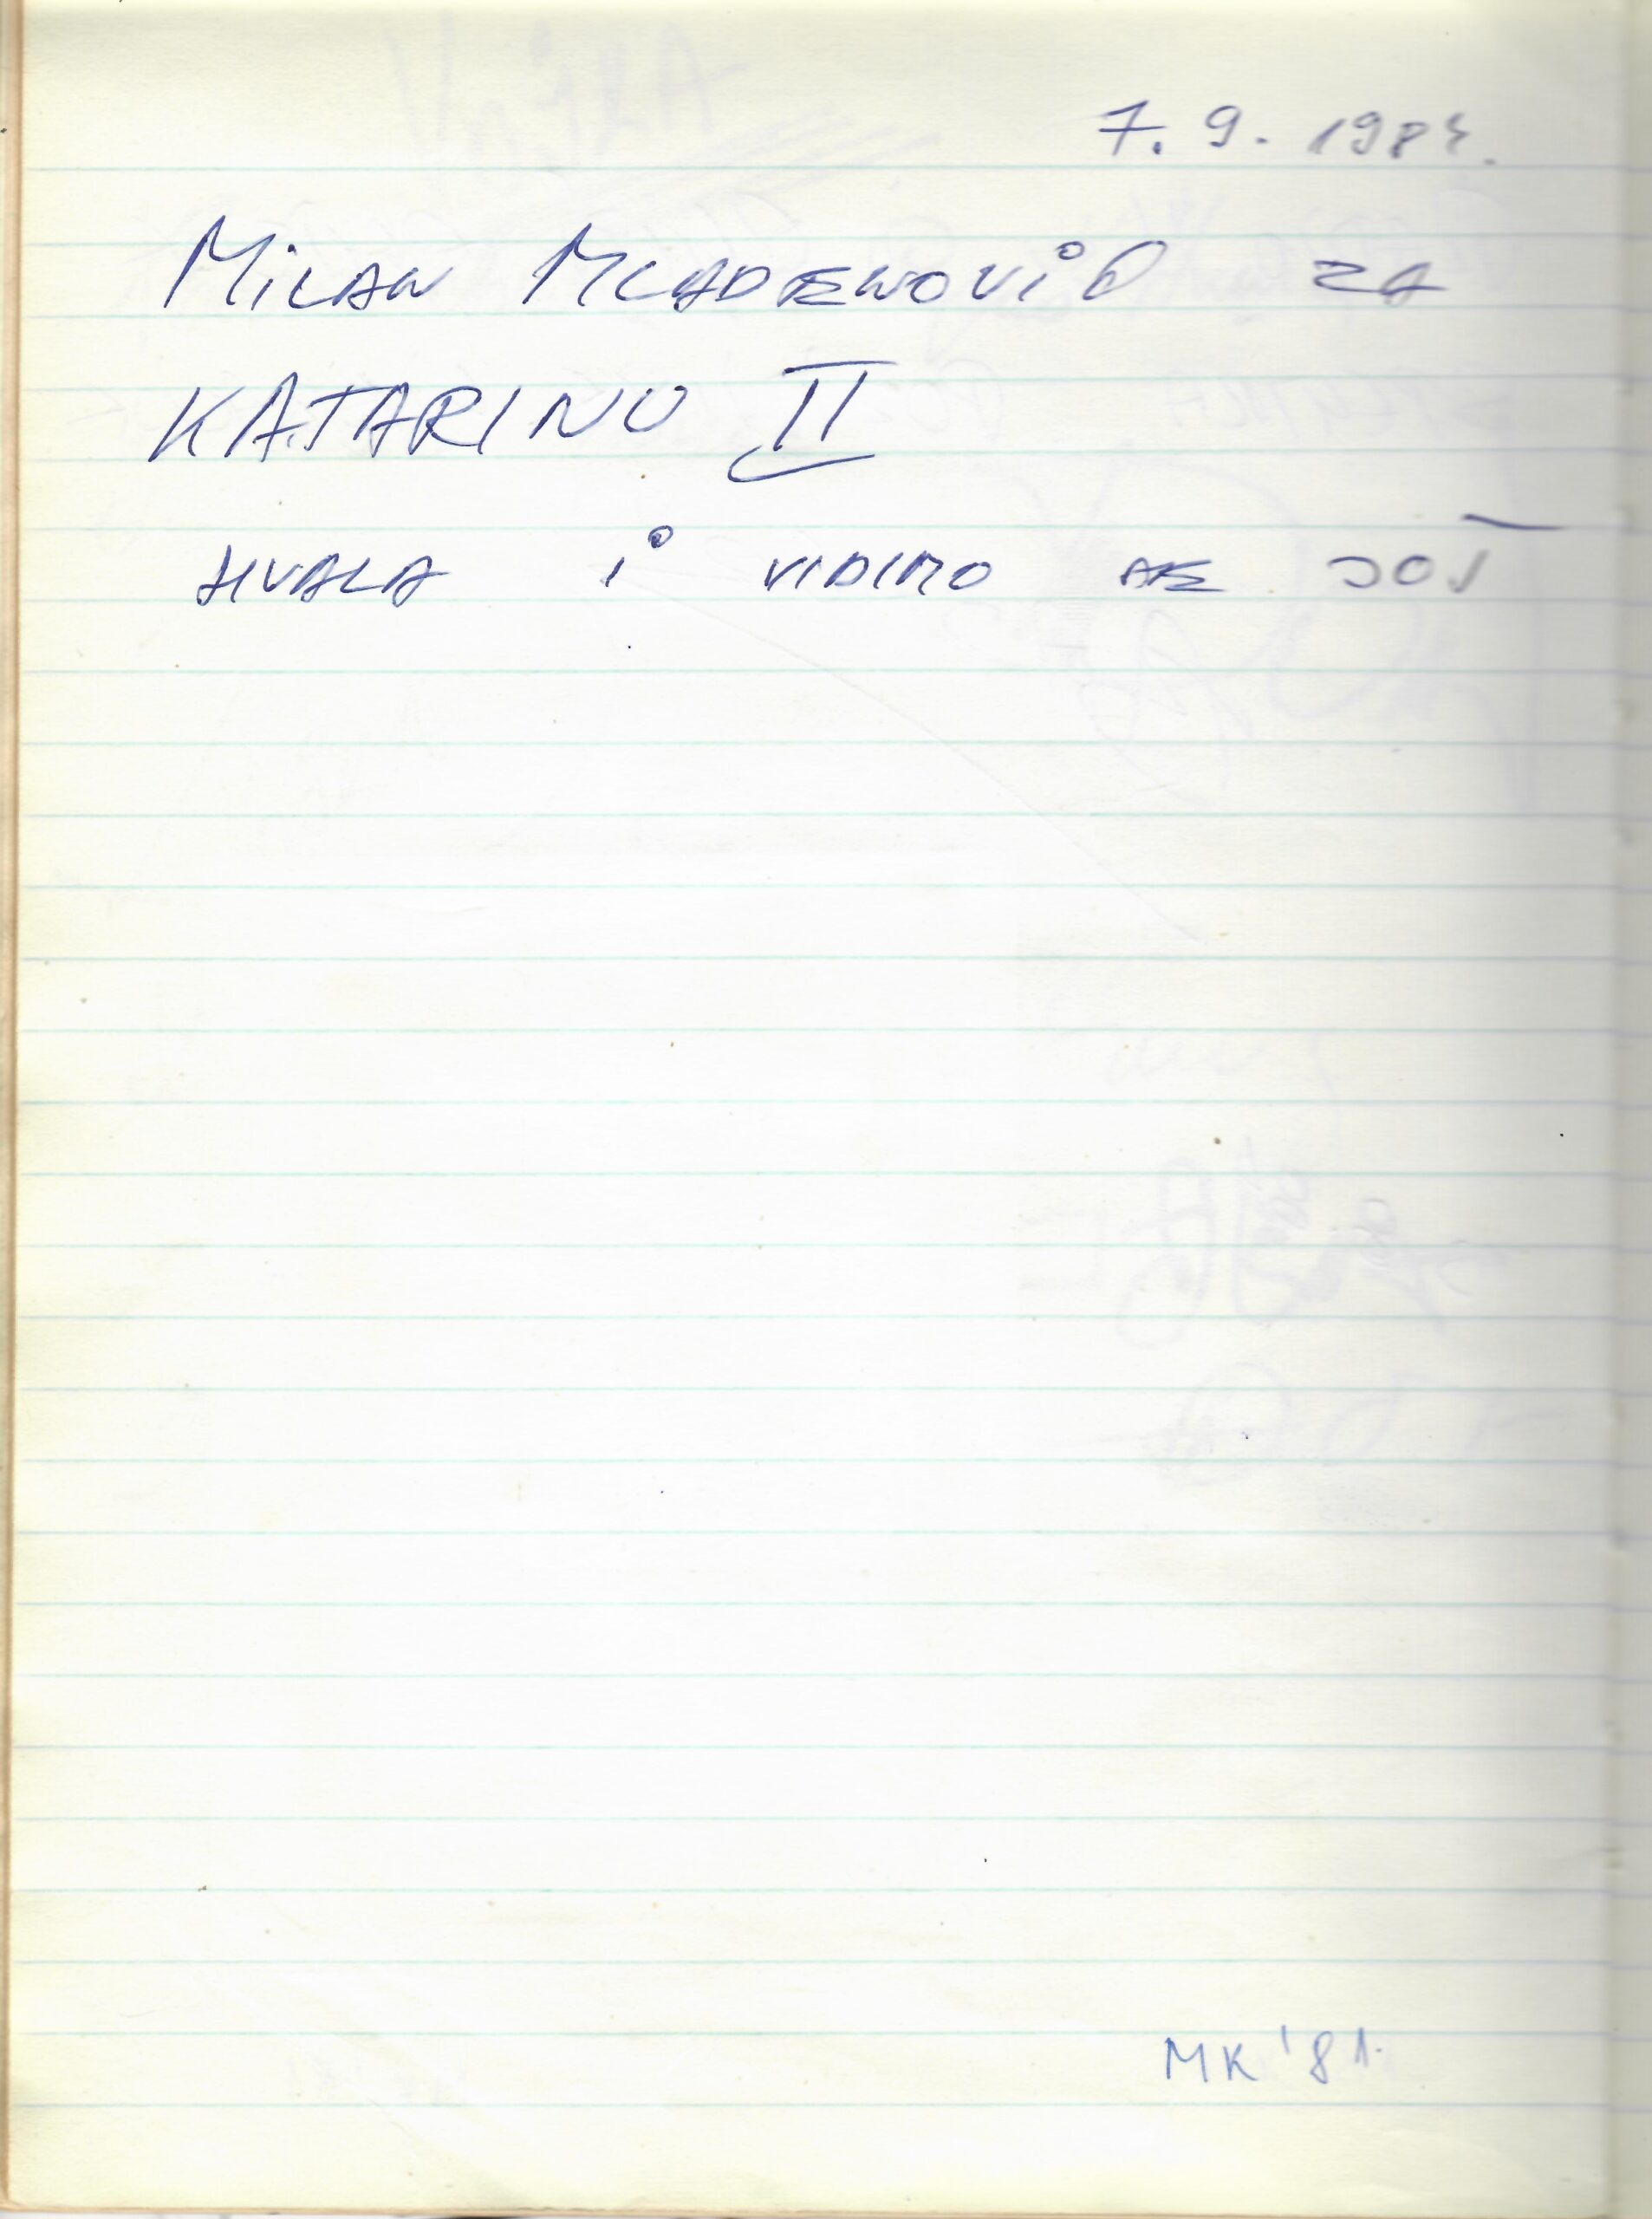 7. 9. 1984.
MiLAN MLADENOViĆ ZA
KATARINU II
HVALA i VIDIMO SE JOŠ
MK '81.